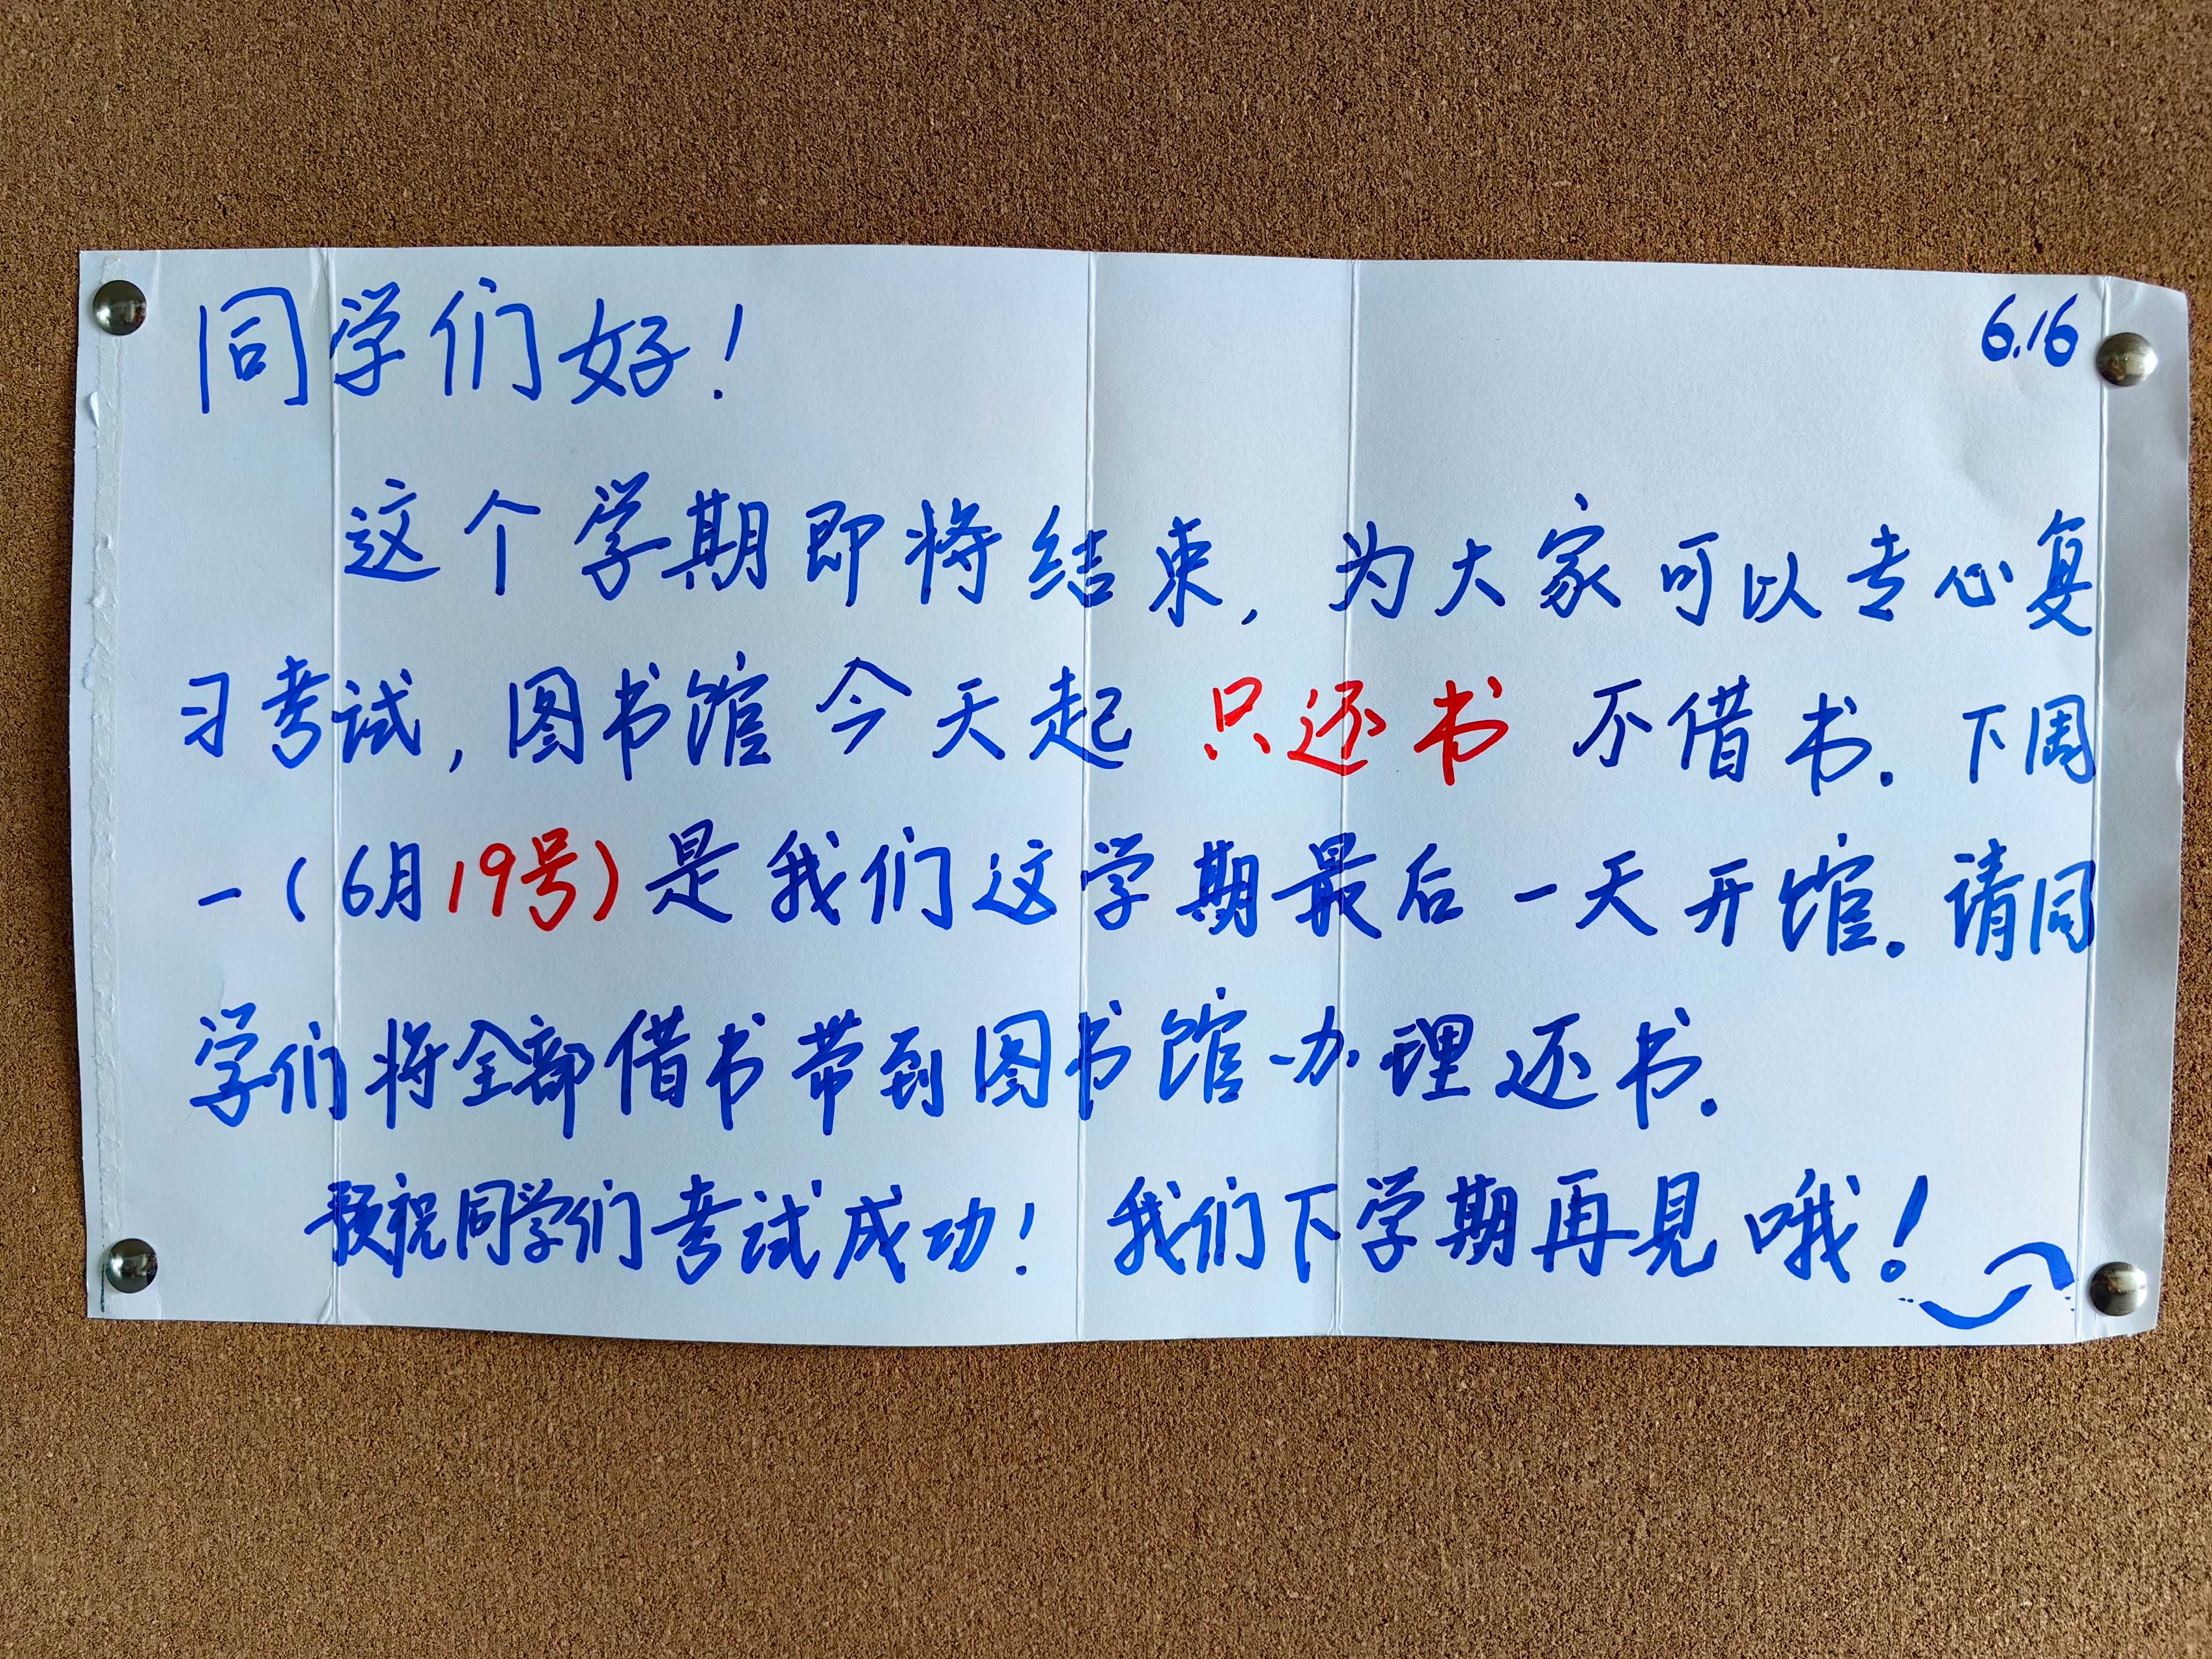 6.16
同学们好！
这个学期即将结束，为大家可以专心复
习考试，图书馆今天起 只还书 不借书．下周
一（6月19号）是我们这学期最后一天开馆．请同
学们将全部借书带到图书馆办理还书．
预祝同学们考试成功！ 我们下学期再见哦！